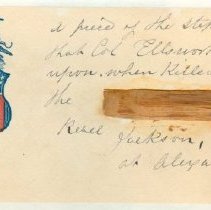 A piece of the step
that Col Ellswor
upon when Kille
the
Rebel Jackson,
at Alexa